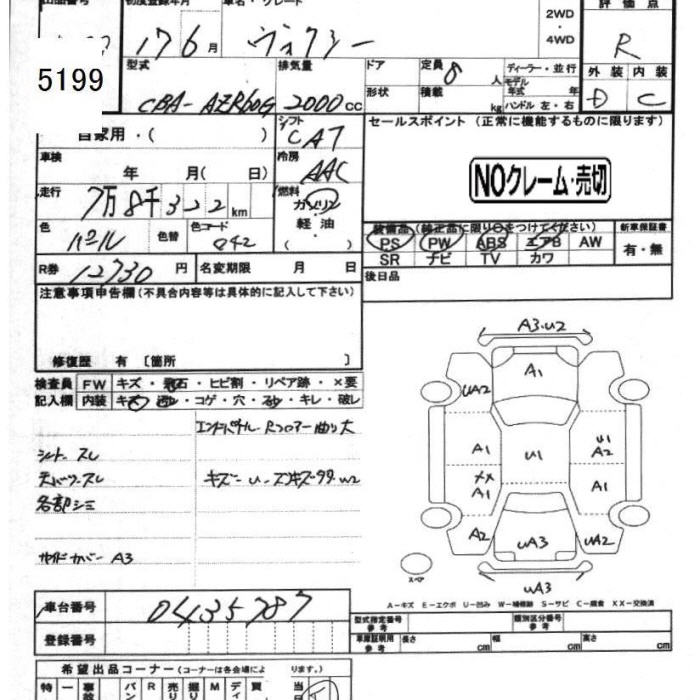 出品番号 初度登録年月 車名・グレード 評価点
17年6月 ヴォクシー 2WD・4WD R
5199
型式 排気量 ドア 定員 8人 ディーラー・並行 外装 内装
CBA-AZR60G 2000cc 形状 積載 kg モデル年式 年 ハンドル 左・右 D C
自家用・( ) シフト CAT セールスポイント (正常に機能するものに限ります)
車検 年 月(日) 冷房 AAC
NOクレーム・売切
走行 7万8千322km 燃料 ガソリン
色 パール 色替 色コード 042 軽油 ( )
装備品(純正品に限り○をつけてください) 新車保証書
PS PW ABS エアB AW 有・無
SR ナビ TV カワ
R券 12730円 名変期限 月 日
後日品
注意事項申告欄(不具合内容等は具体的に記入して下さい)
修復歴 有 〔箇所 〕
検査員 FW キズ・飛石・ヒビ割・リペア跡・×要
記入欄 内装 キズ・汚レ・コゲ・穴・スレ・キレ・破レ
エンドパネル・Rフロアー曲り大
シート スレ
天バリ スレ キズ
各部シミ
サイドカバー A3
A3・U2
A1
UA2
A1 U1 U1 A2
XX A1 A1
A2 UA3 UA2
スペア
UA3
A-キズ E-エクボ U-凹み W-補修跡 S-サビ C-腐食 XX-交換済
車台番号 0435787
型式指定番号 参考 類別区分番号 参考
登録番号
車庫証明用 参考 長さ cm 幅 cm 高さ cm
希望出品コーナー (コーナーは各会場によります。)
特 一 事故 バン R 売り 掘り M ディ 買 当日